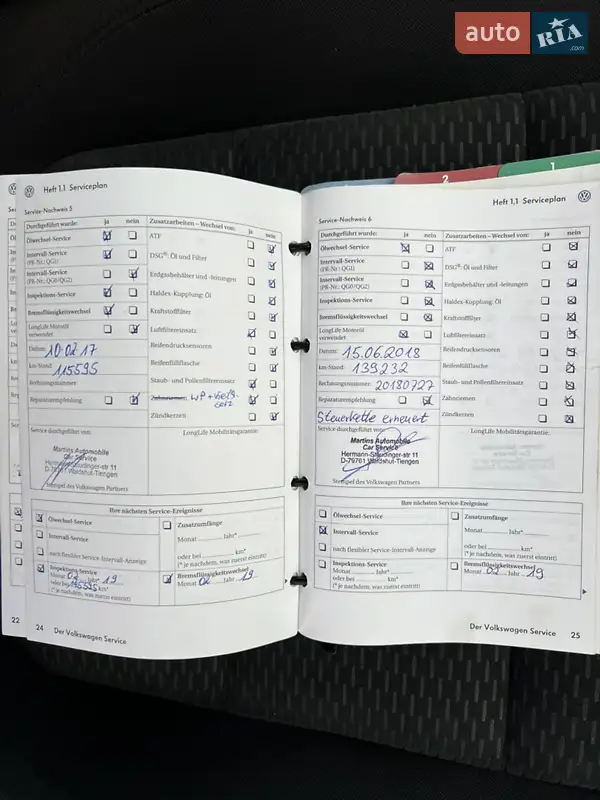 auto
RIA
.com
2
1
Heft 1.1 Serviceplan
Service-Nachweis 5
Durchgeführt wurde: ja nein
Ölwechsel-Service
Intervall-Service
(PR-Nr.: QG1)
Intervall-Service
(PR-Nr.: QG0/QG2)
Inspektions-Service
Bremsflüssigkeitswechsel
LongLife Motoröl
verwendet
Datum: 10.02.17
km-Stand: 115595
Rechnungsnummer
Reparaturempfehlung
Zusatzarbeiten – Wechsel von: ja nein
ATF
DSG®: Öl und Filter
Erdgasbehälter und -leitungen
Haldex-Kupplung: Öl
Kraftstofffilter
Luftfiltereinsatz
Reifendrucksensoren
Reifenfüllflasche
Staub- und Pollenfiltereinsatz
Zahnriemen
Zündkerzen
Service durchgeführt von:
LongLife Mobilitätsgarantie:
Martins Automobile
Car Service
Hermann-Staudinger-str 11
D-79761 Waldshut-Tiengen
Stempel des Volkswagen Partners
Ihre nächsten Service-Ereignisse
Ölwechsel-Service
Intervall-Service
nach flexibler Service-Intervall-Anzeige
Inspektions-Service
Monat 02 Jahr* 19
oder bei 145595 km*
(* je nachdem, was zuerst eintritt)
Zusatzumfänge
Monat Jahr*
oder bei km*
(* je nachdem, was zuerst eintritt)
Bremsflüssigkeitswechsel
Monat 02 Jahr 19
22
24 Der Volkswagen Service
Heft 1.1 Serviceplan
Service-Nachweis 6
Durchgeführt wurde: ja nein
Ölwechsel-Service
Intervall-Service
(PR-Nr.: QG1)
Intervall-Service
(PR-Nr.: QG0/QG2)
Inspektions-Service
Bremsflüssigkeitswechsel
LongLife Motoröl
verwendet
Datum: 15.06.2018
km-Stand: 139232
Rechnungsnummer 20180727
Reparaturempfehlung
Steuerkette erneuert
Zusatzarbeiten – Wechsel von: ja nein
ATF
DSG®: Öl und Filter
Erdgasbehälter und -leitungen
Haldex-Kupplung: Öl
Kraftstofffilter
Luftfiltereinsatz
Reifendrucksensoren
Reifenfüllflasche
Staub- und Pollenfiltereinsatz
Zahnriemen
Zündkerzen
Service durchgeführt von:
LongLife Mobilitätsgarantie:
Martins Automobile
Car Service
Hermann-Staudinger-str 11
D-79761 Waldshut-Tiengen
Stempel des Volkswagen Partners
Ihre nächsten Service-Ereignisse
Ölwechsel-Service
Intervall-Service
nach flexibler Service-Intervall-Anzeige
Inspektions-Service
Monat Jahr*
oder bei km*
(* je nachdem, was zuerst eintritt)
Zusatzumfänge
Monat Jahr*
oder bei km*
(* je nachdem, was zuerst eintritt)
Bremsflüssigkeitswechsel
Monat 02 Jahr 19
Der Volkswagen Service 25